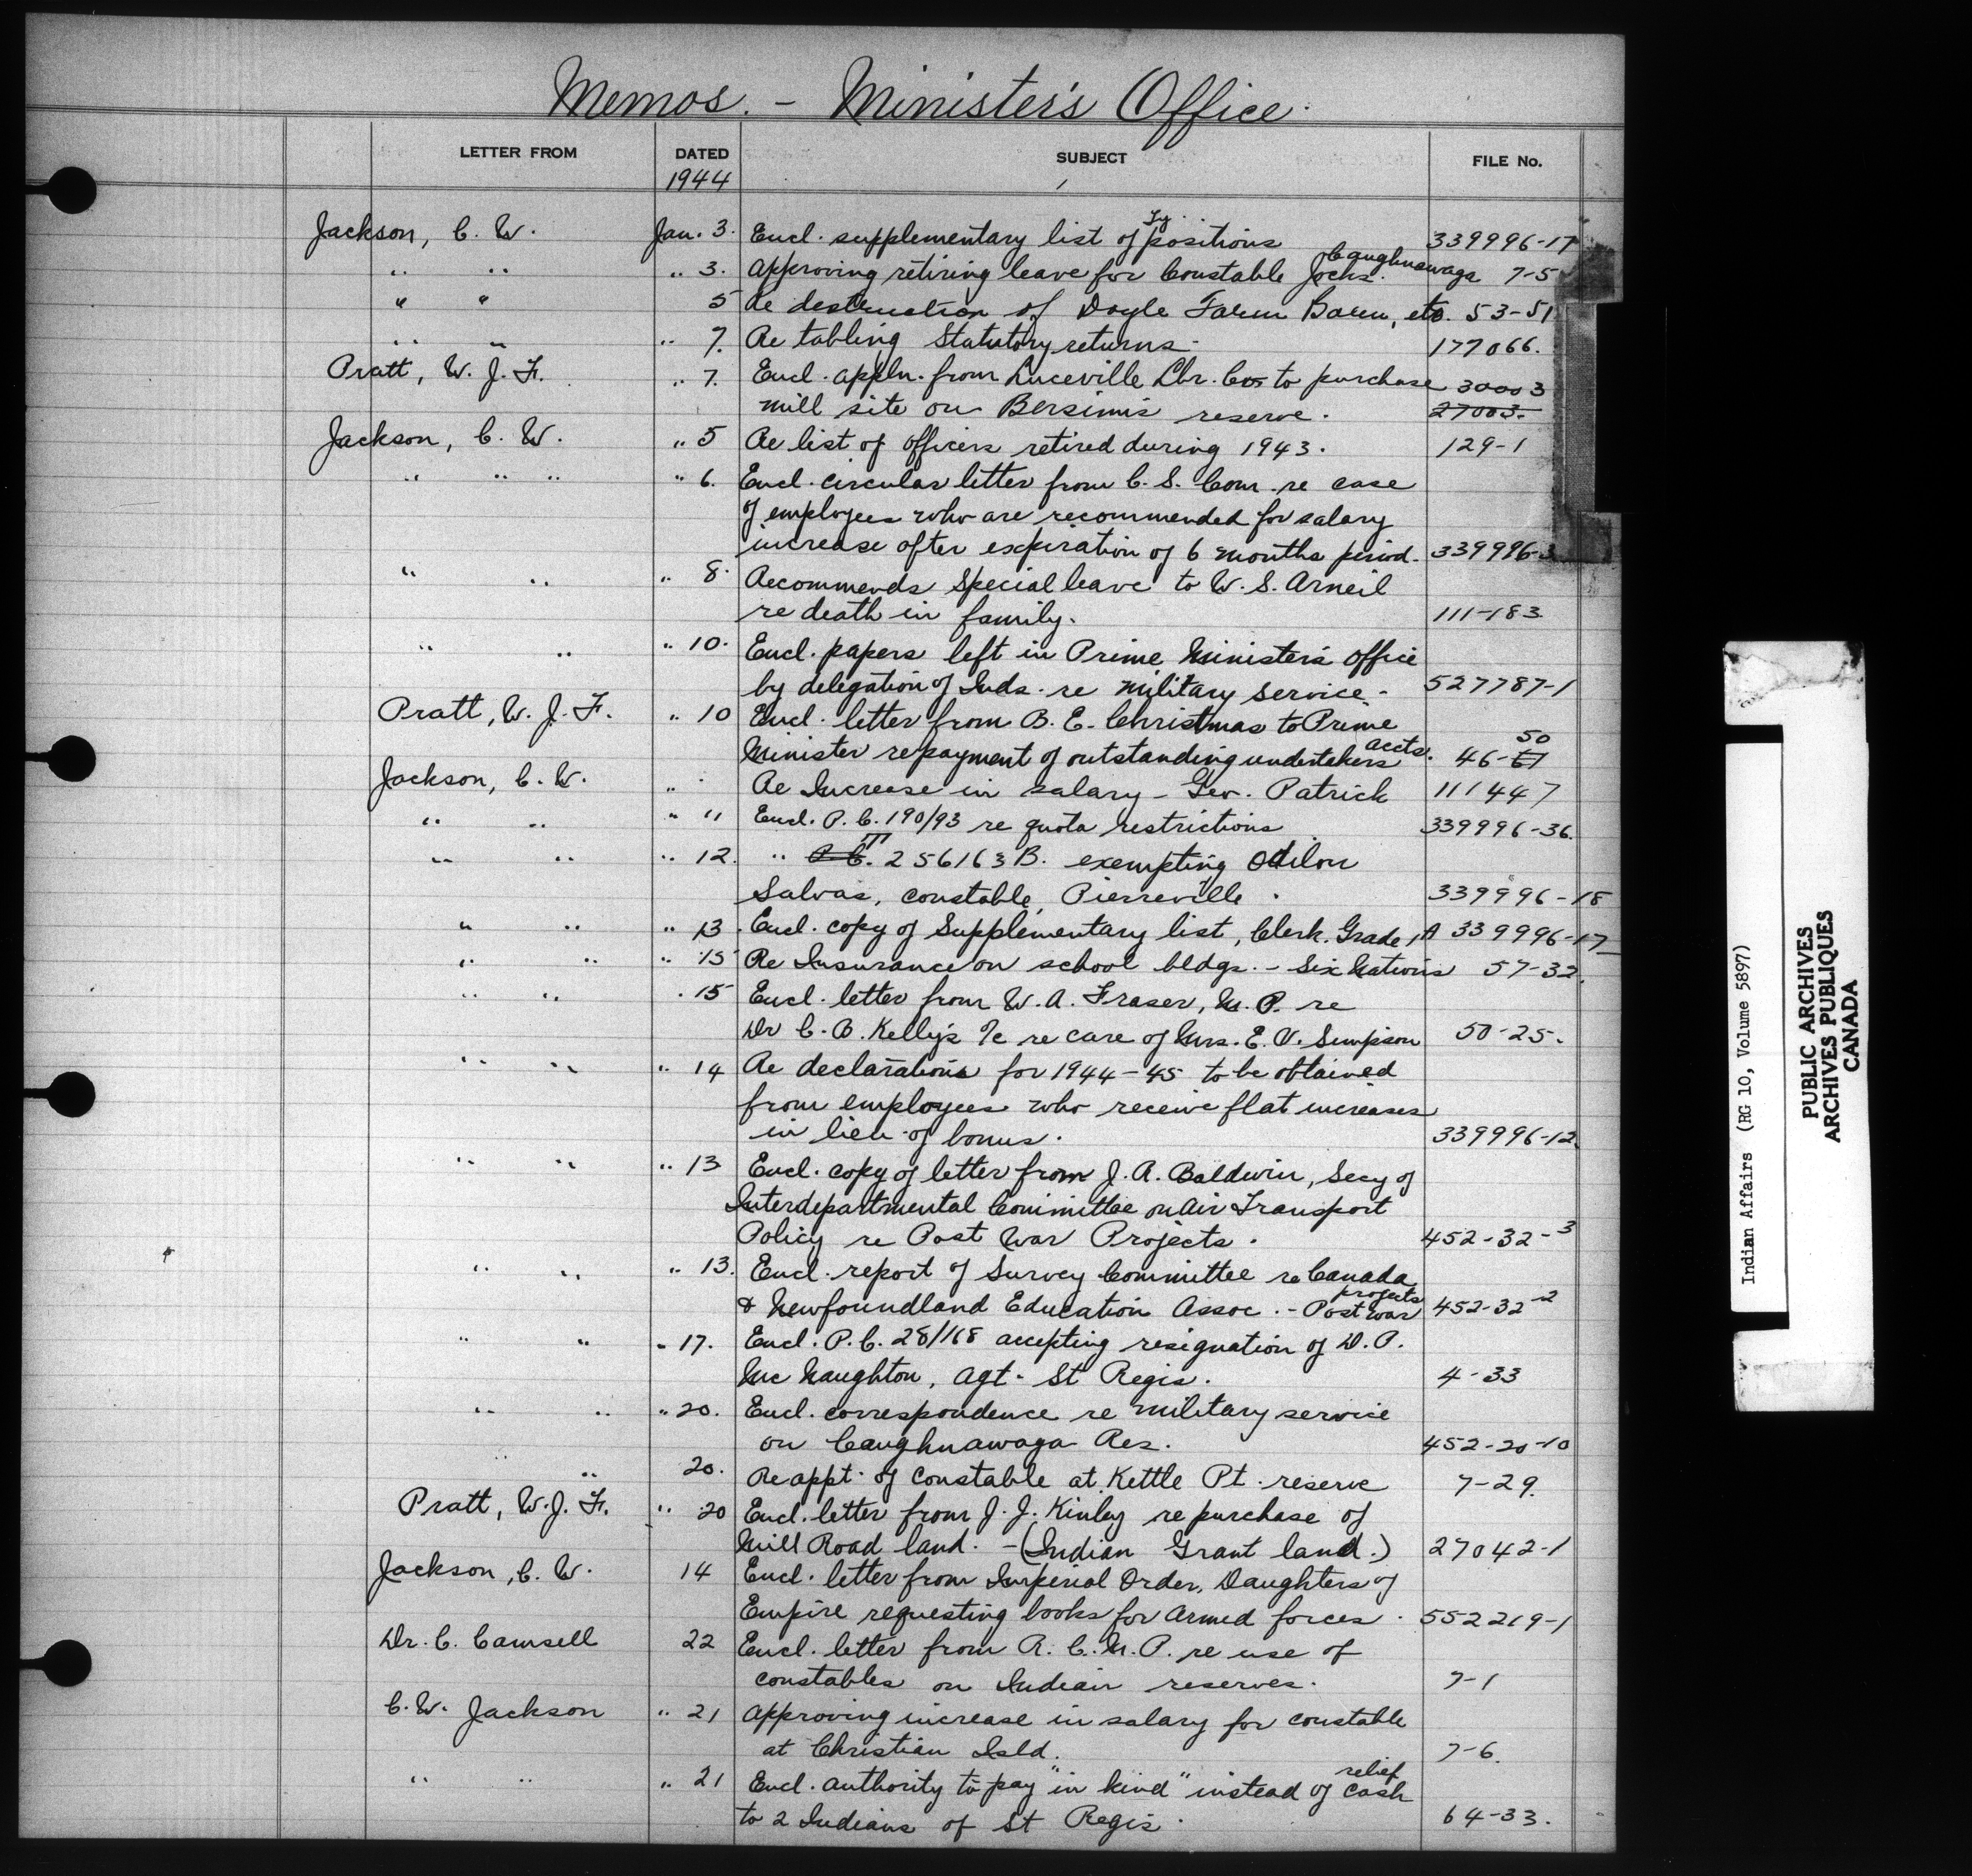 Memos. - Minister's Office.
LETTER FROM DATED SUBJECT FILE No.
1944
Jackson, C. W. Jan. 3. Encl. supplementary list of Ty. positions 339996-17
" " " 3. Approving retiring leave for Constable Jocks. Caughnawaga 7-5
" " 5 Re destruction of Doyle Farm Barn, etc. 53-51
" " " 7. Re tabling Statutory returns. 177066.
Pratt, W. J. F. " 7. Encl. appln. from Luceville Lbr. Co. to purchase 30003
mill site on Bersimis reserve. 27003.
Jackson, C. W. " 5 Re list of officers retired during 1943. 129-1
" " " " 6. Encl. circular letter from C. S. Com. re case
of employees who are recommended for salary
increase after expiration of 6 months period. 339996-3
" " " 8. Recommends Special leave to W. S. Arneil
re death in family. 111-183
" " " 10. Encl. papers left in Prime Minister's office
by delegation of Inds. re military service. 527787-1
Pratt, W. J. F. " 10 Encl. letter from B. E. Christmas to Prime
Minister re payment of outstanding undertakers accts. 46-50
Jackson, C. W. " Re Increase in salary - Geo. Patrick 111447
" " " 11 Encl. P. C. 190/93 re quota restrictions 339996-36.
" " " 12. " P. C. T. 256163 B. exempting Odilon
Salvas, constable, Pierreville. 339996-18
" " " 13. Encl. copy of Supplementary list, Clerk. Grade 1A 339996-17
" " " 15 Re Insurance on school bldgs. - Six Nations 57-32.
" " . 15 Encl. letter from W. A. Fraser, M. P. re
Dr C. B. Kelly's a/c re care of Mrs. E. V. Simpson 50-25.
" " " 14 Re declarations for 1944-45 to be obtained
from employees who receive flat increases
in lieu of bonus. 339996-12.
" " " 13 Encl. copy of letter from J. A. Baldwin, Secy of
Interdepartmental Committee on Air Transport
Policy re Post War Projects. 452-32-3
" " " 13. Encl. report of Survey Committee re Canada
& Newfoundland Education Assoc. - Post war projects 452-32-2
" " " 17. Encl. P. C. 28/168 accepting resignation of D. P.
McNaughton, Agt. St Regis. 4-33
" " " 20. Encl. correspondence re military service
on Caughnawaga Res. 452-20-10
" " 20. Re appt. of constable at Kettle Pt. reserve 7-29.
Pratt, W. J. F. " 20 Encl. letter from J. J. Kinley re purchase of
Mill Road land. - (Indian Grant land.) 27042-1
Jackson, C. W. 14 Encl. letter from Imperial Order, Daughters of
Empire requesting books for Armed forces. 552219-1
Dr. C. Camsell 22 Encl. letter from R. C. M. P. re use of
constables on Indian reserves. 7-1
C. W. Jackson " 21 Approving increase in salary for constable
at Christian Isld. 7-6.
" " " 21 Encl. authority to pay "in kind" instead of cash relief
to 2 Indians of St Regis. 64-33.
Indian Affairs (RG 10, Volume 5897)
PUBLIC ARCHIVES
ARCHIVES PUBLIQUES
CANADA